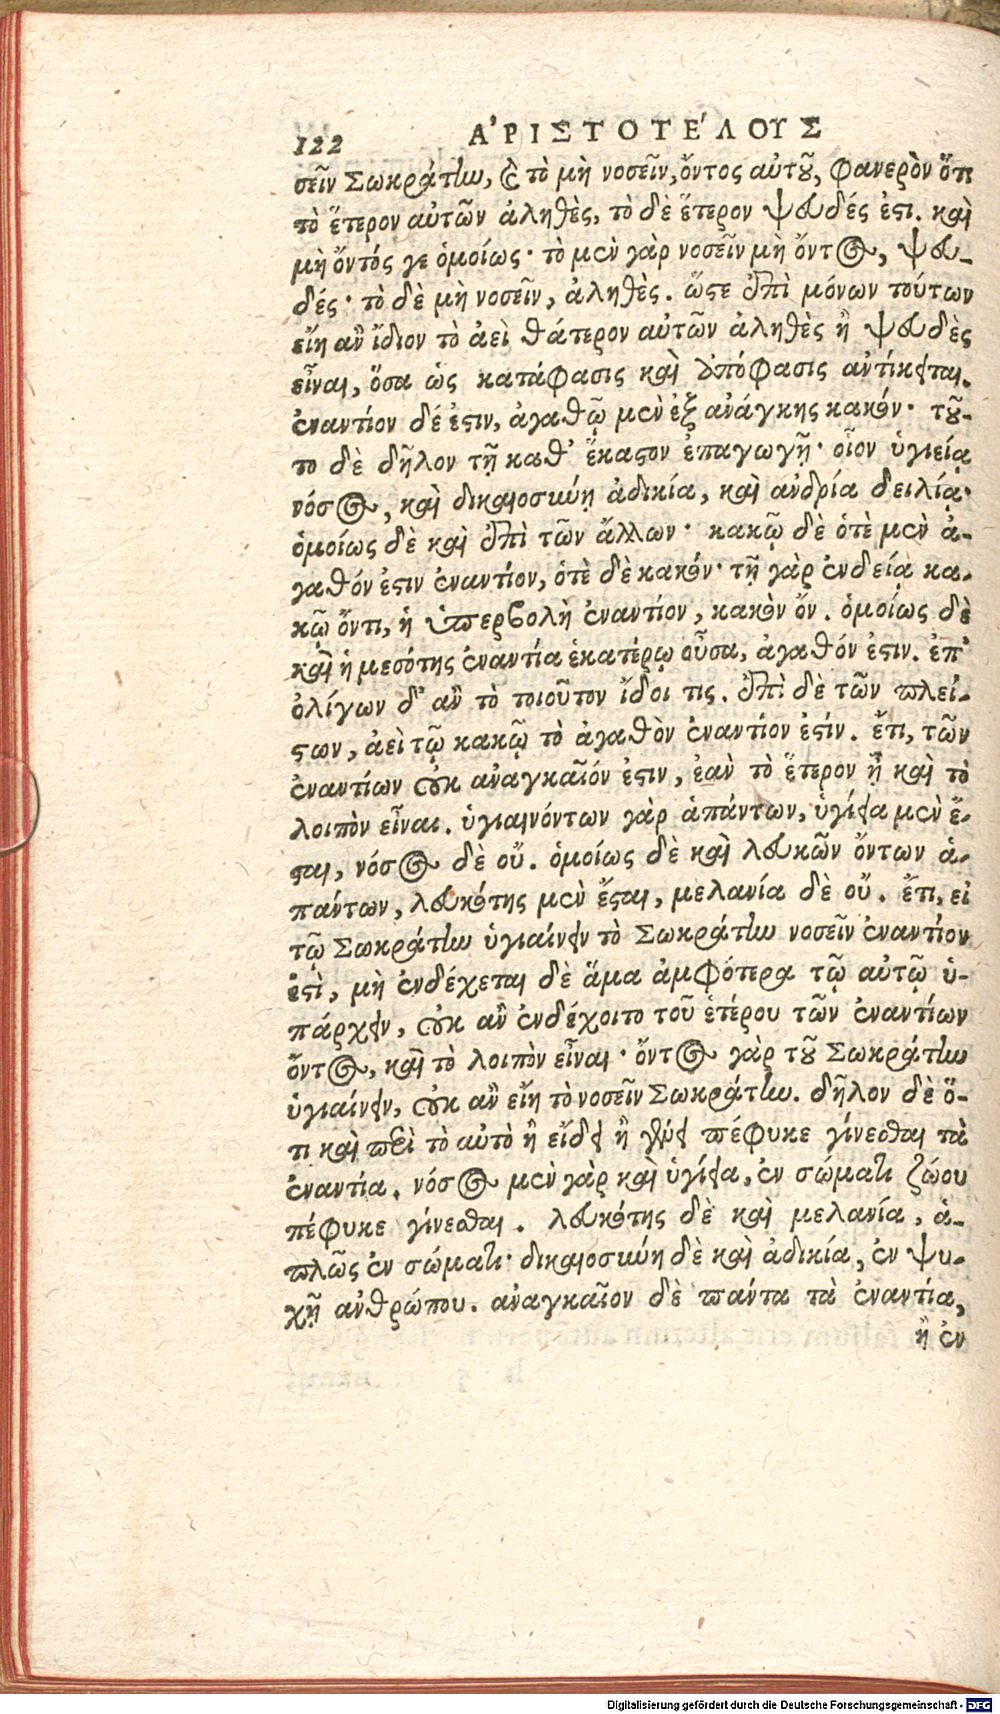 122 ΑʼΡΙΣΤΟΤΕΛΟΥΣ
σεῖν Σωκράτην, καὶ τὸ μὴ νοσεῖν, ὄντος αὐτοῦ, φανερὸν ὅτι
τὸ ἕτερον αὐτῶν ἀληθὲς, τὸ δὲ ἕτερον ψευδές ἐστι. καὶ
μὴ ὄντός γε ὁμοίως· τὸ μὲν γὰρ νοσεῖν μὴ ὄντος, ψευ-
δές· τὸ δὲ μὴ νοσεῖν, ἀληθές. ὥστε ἐπὶ μόνων τούτων
εἴη ἂν ἴδιον τὸ ἀεὶ θάτερον αὐτῶν ἀληθὲς ἢ ψευδὲς
εἶναι, ὅσα ὡς κατάφασις καὶ ἀπόφασις ἀντίκειται.
ἐναντίον δέ ἐστιν, ἀγαθῷ μὲν ἐξ ἀνάγκης κακόν· τοῦ-
το δὲ δῆλον τῇ καθ’ ἕκαστον ἐπαγωγῇ· οἷον ὑγιείᾳ
νόσος, καὶ δικαιοσύνῃ ἀδικία, καὶ ἀνδρία δειλίᾳ·
ὁμοίως δὲ καὶ ἐπὶ τῶν ἄλλων· κακῷ δὲ ὁτὲ μὲν ἀ-
γαθόν ἐστιν ἐναντίον, ὁτὲ δὲ κακόν· τῇ γὰρ ἐνδείᾳ κα-
κῷ ὄντι, ἡ ὑπερβολὴ ἐναντίον, κακὸν ὄν. ὁμοίως δὲ
καὶ ἡ μεσότης ἐναντία ἑκατέρῳ οὖσα, ἀγαθόν ἐστιν. ἐπ’
ὀλίγων δ’ ἂν τὸ τοιοῦτον ἴδοι τις. ἐπὶ δὲ τῶν πλεί-
στων, ἀεὶ τῷ κακῷ τὸ ἀγαθὸν ἐναντίον ἐστίν. ἔτι, τῶν
ἐναντίων οὐκ ἀναγκαῖόν ἐστιν, ἐὰν τὸ ἕτερον ᾖ καὶ τὸ
λοιπὸν εἶναι. ὑγιαινόντων γὰρ ἁπάντων, ὑγίεια μὲν ἔ-
σται, νόσος δὲ οὔ. ὁμοίως δὲ καὶ λευκῶν ὄντων ἁ-
πάντων, λευκότης μὲν ἔσται, μελανία δὲ οὔ. ἔτι, εἰ
τῷ Σωκράτην ὑγιαίνειν τὸ Σωκράτην νοσεῖν ἐναντίον
ἐστὶ, μὴ ἐνδέχεται δὲ ἅμα ἀμφότερα τῷ αὐτῷ ὑ-
πάρχειν, οὐκ ἂν ἐνδέχοιτο τοῦ ἑτέρου τῶν ἐναντίων
ὄντος, καὶ τὸ λοιπὸν εἶναι· ὄντος γὰρ τοῦ Σωκράτην
ὑγιαίνειν, οὐκ ἂν εἴη τὸ νοσεῖν Σωκράτην. δῆλον δὲ ὅ-
τι καὶ περὶ τὸ αὐτὸ ἢ εἴδει ἢ γένει πέφυκε γίνεσθαι τὰ
ἐναντία. νόσος μὲν γὰρ καὶ ὑγίεια, ἐν σώματι ζώου
πέφυκε γίνεσθαι. λευκότης δὲ καὶ μελανία, ἁ-
πλῶς ἐν σώματι· δικαιοσύνη δὲ καὶ ἀδικία, ἐν ψυ-
χῇ ἀνθρώπου. ἀναγκαῖον δὲ πάντα τὰ ἐναντία,
ἢ ἐν
Digitalisierung gefördert durch die Deutsche Forschungsgemeinschaft - DFG